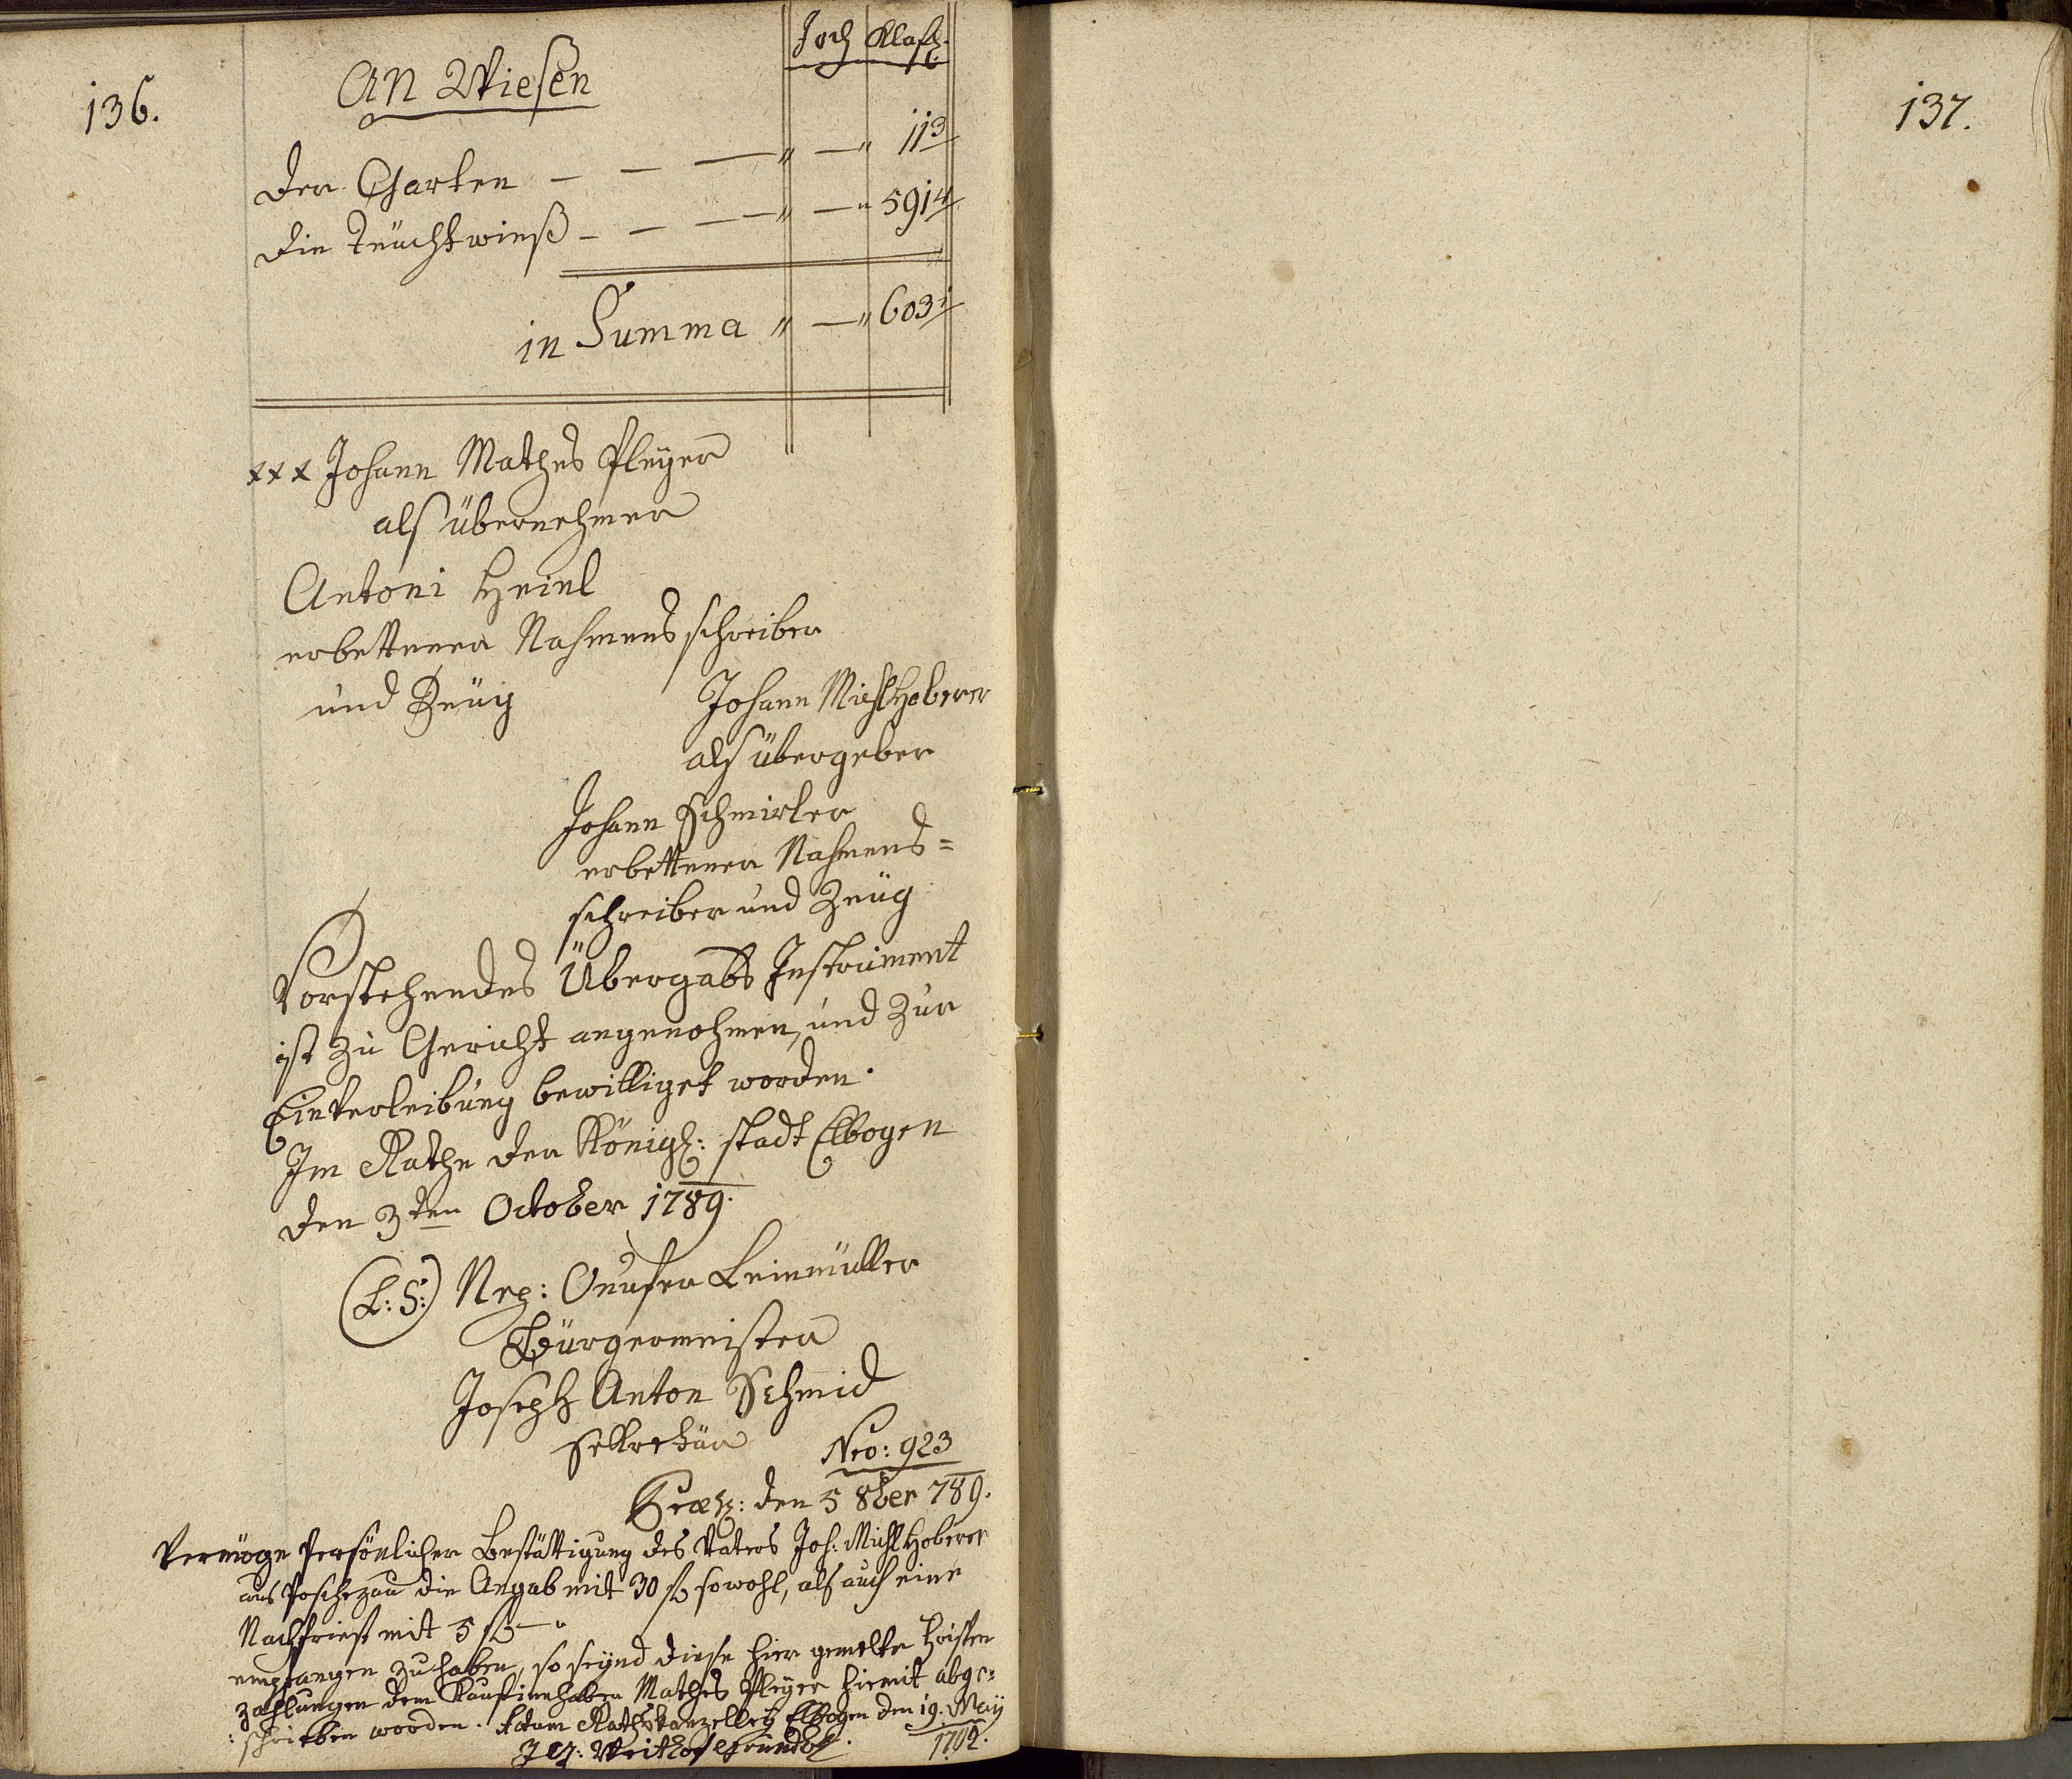 136.
An Wiesen
Joch Klaft.
Der Garten — — — " — " 113
Die Teüchtwieß — — — " — " 5914
in Summa " — " 603
xxx Johann Mathes Pleyer
als übernehmer
Antoni Heinl
erbettener Nahmens schreiber
und Zeüg
Johann Michl Hoberer
als übergeber
Johann Schmirler
erbettener Nahmens=
schreiber und Zeüg
Vorstehendes Übergabs Instrument
ist zu Gericht angenohmen, und zur
Einverleibung bewilliget worden.
Im Rathe der Königl: stadt Ellbogen
den 3ten October 1789.
(L:S:) Nep: Onufer Leinmüller
Bürgermeister
Joseph Anton Schmid
Sekretär
Nro: 923
den 5 8ber 789.
Vermöge Persönlicher Bestättigung des Vaters Joh: Michl Hoberer
aus Poschezau die Angab mit 30 fl sowohl, als auch eine
Nachfrist mit 5 fl — "
empfangen zu haben, so seynd diese hier gemelte Fristen
zahlungen dem Kaufinnhaber Mathes Pleyer hiemit abge=
:schrieben worden. Actum Rathskanzelley Ellbogen den 19. May
1792.
137.